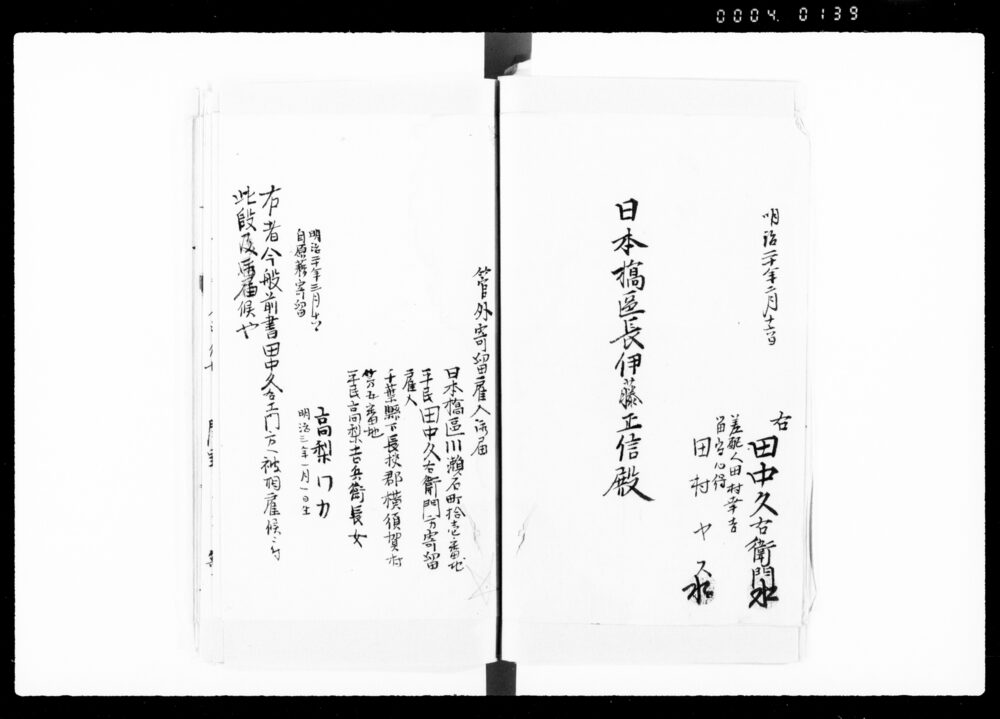 0004 0139
明治二十年二月十六日
右
田中久右衛門
差配人田村幸吉
留守心得
田村ヤス
日本橋區長伊藤正信殿
管外寄留雇人御届
日本橋區川瀬石町拾壱番地
平民田中久右衛門方寄留
雇人
千葉縣下長柄郡横須賀村
廿五番地
平民高梨吉兵衛長女
高梨ワカ
明治三年一月一日生
明治二十年三月十六
自原籍寄留
右者今般前書田中久右エ門方ヘ被相雇候ニ付
此段及御届候や